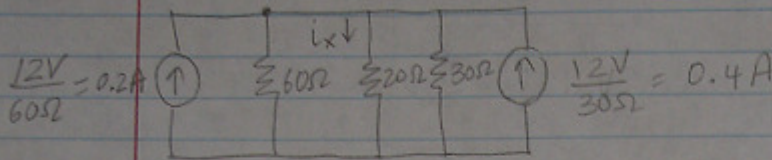 iₓ↓
12V/60Ω = 0.2A ↑ 60Ω 20Ω 30Ω ↑ 12V/30Ω = 0.4A